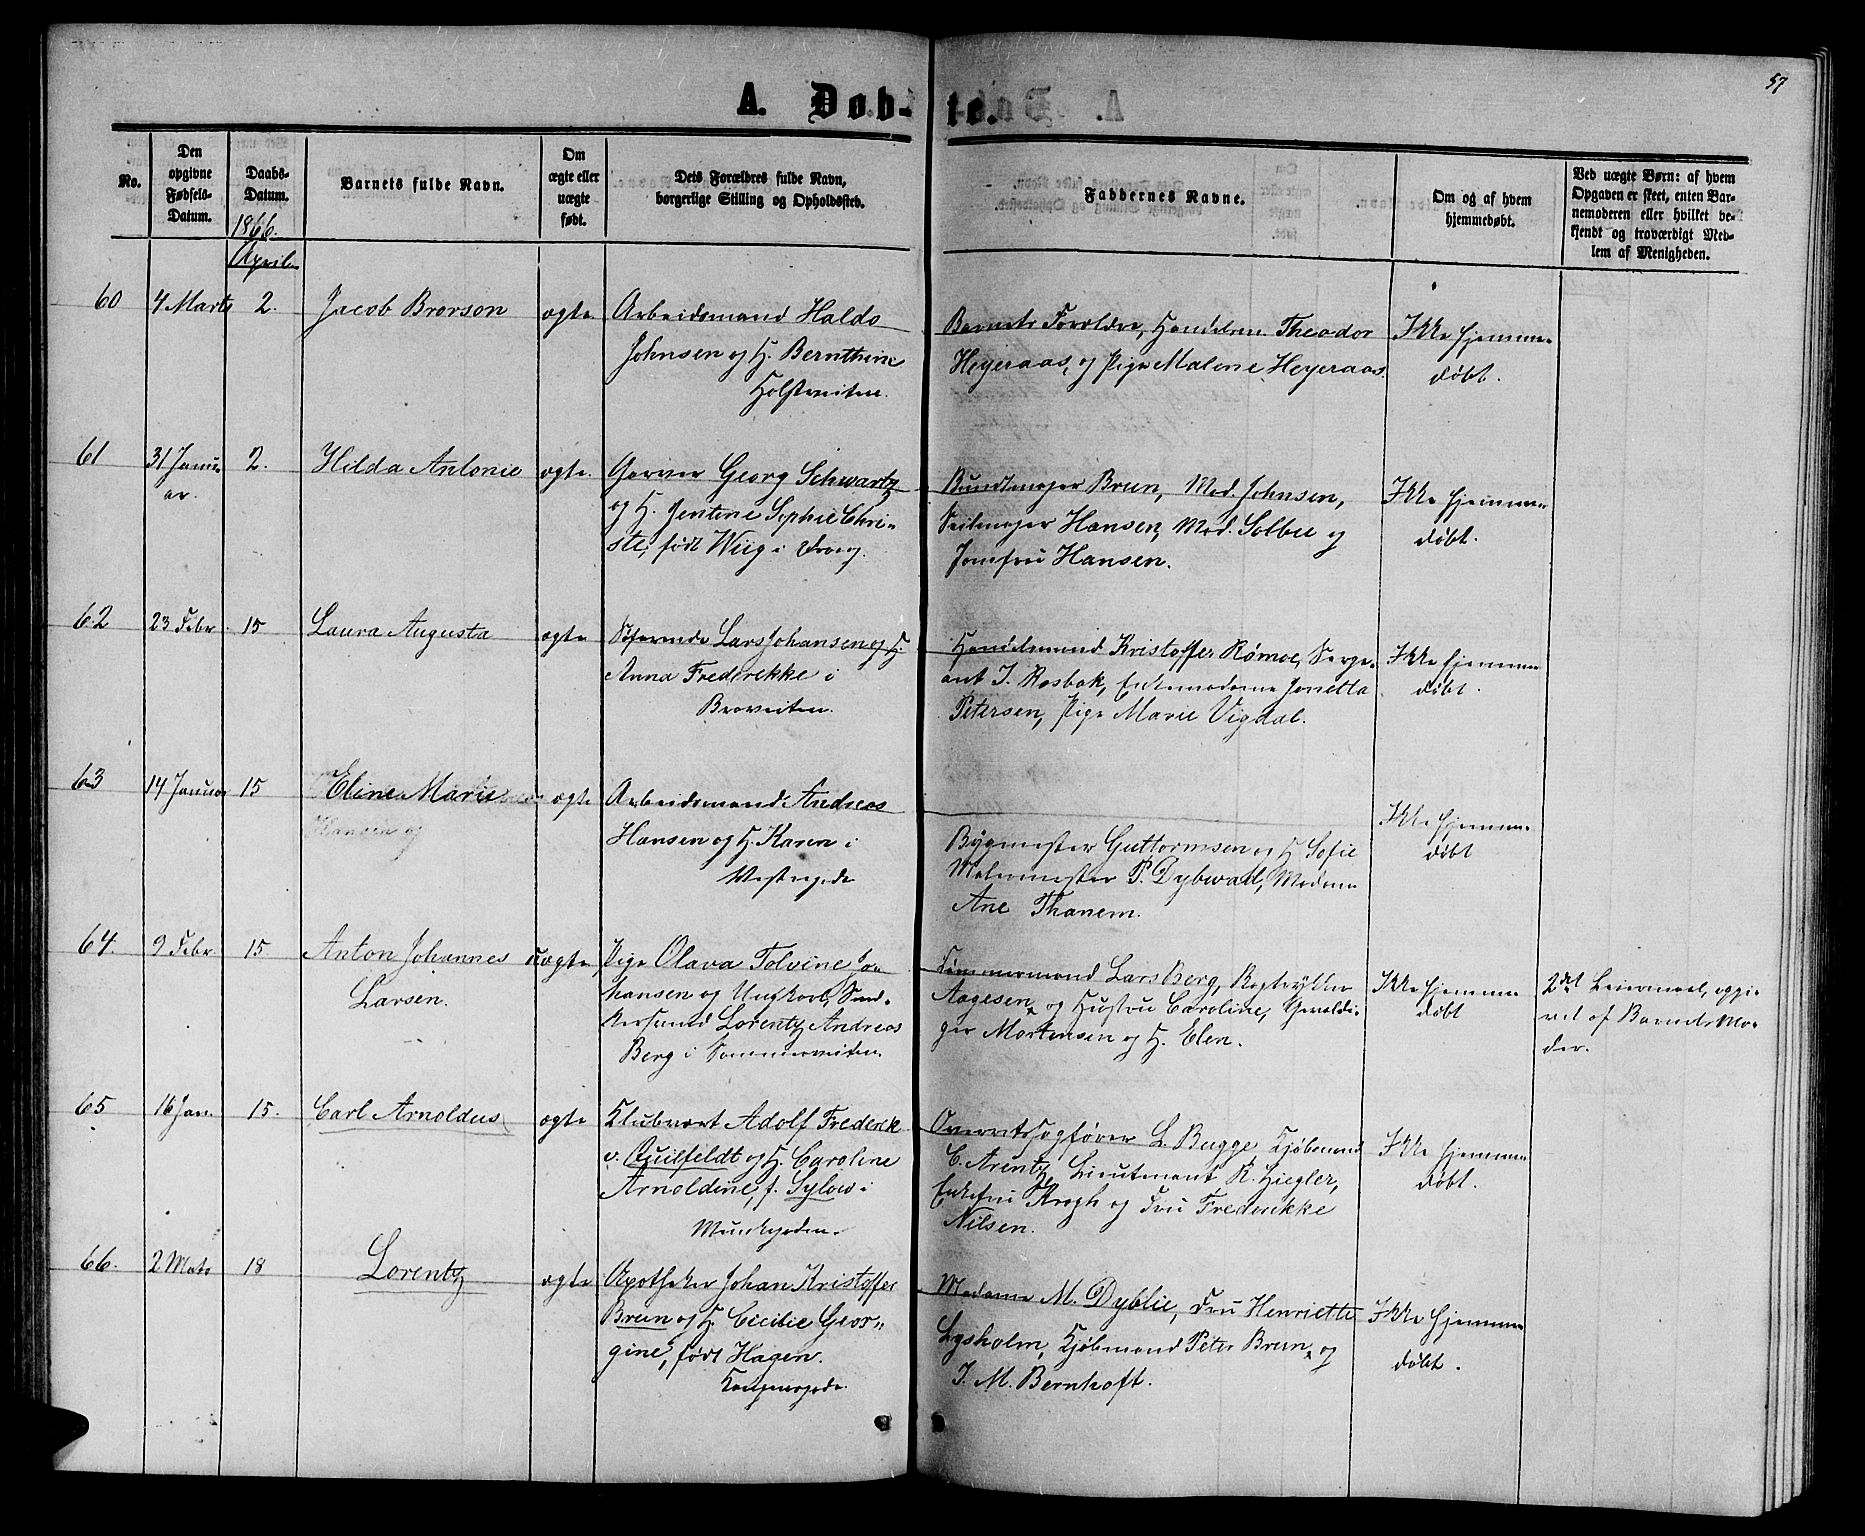 57
A. Døb-te.
No.
Den opgivne Fødsels-Datum.
Daabs-Datum.
Barnets fulde Navn.
Om ægte eller uægte født.
Dets Forældres fulde Navn, borgerlige Stilling og Opholdssted.
Faddernes Navne.
Om og af hvem hjemmedøbt.
Ved uægte Børn: af hvem Opgaven er skeet, enten Barnemoderen eller hvilket bekjendt og troværdigt Medlem af Menigheden.
1866.
April
60 4 Marts 2. Jacob Brorson ægte Arbeidsmand Haldo
Johnsen og H. Bernthine
Holstveiten.
Barnets Forældre, Handelsm. Theodor
Heyeraas, og Pige Malene Heyeraas.
Ikke hjemme
døbt.
61 31 Janu-
ar. 2. Hilda Antonie ægte. Garver Georg Schwartz
og H. Jentine Sophie Chri-
ste, født Wiig i
Bundtmager Brun, Mad. Johnsen,
Seilmager Hansen, Mad. Solbu og
Jomfru Hansen.
Ikke hjemme
døbt.
62 23 Febr 15 Laura Augusta ægte Søfarende Lars Johansen og H.
Anna Frederekke i
Braveiten.
Handelsmand Kristoffer Rømoe, Serge-
ant J. Rosbak, Enkemadame Jonetta
Petersen, Pige Marie Vigdal.
Ikke hjemme
døbt.
63 14 Januar 15 Eline Marie ægte Arbeidsmand Andreas
Hansen og H. Karen i
Vestregade
Bygmester Guttormsen og H. Sofie
Malermester P. Dybwad, Madam
Ane Thanem.
Ikke hjemme
døbt
64. 9 Febr. 15. Anton Johannes
Larsen.
uægte Pige Olava Tolvine Jo-
hansen og Ungkarl, Sned-
kersvend Lorentz Andreas
Berg i Sommerveiten.
Tømmermand Lars Berg,
Aagesen og Hustru Caroline,
Mortensen og H. Elen.
Ikke hjemme
døbt
2det Leiermaal, opgi-
vet af Barnets Mo-
der.
65 16 Jan. 15. Carl Arnoldus ægte Klubvært Adolf Frederik
v. Quilfeldt og H. Caroline
Arnoldine, f. Sylow i
Munkegaden.
Overretssagfører L. Bugge, Kjøbmand
C. Arentz, Lieutenant R. Ziegler,
Enkefru Krogh og Fru Frederikke
Nilsen.
Ikke hjemme
døbt.
66. 2 Marts 18 Lorentz ægte Apotheker Johan Kristoffer
Brun og H. Cicilie Geor-
gine, født Hagen.
Kongensgade.
Madame M. Dyblie, Fru Henriette
Lysholm, Kjøbmand Peter Brun, og
J. M. Bernhoft.
Ikke hjemme
døbt.